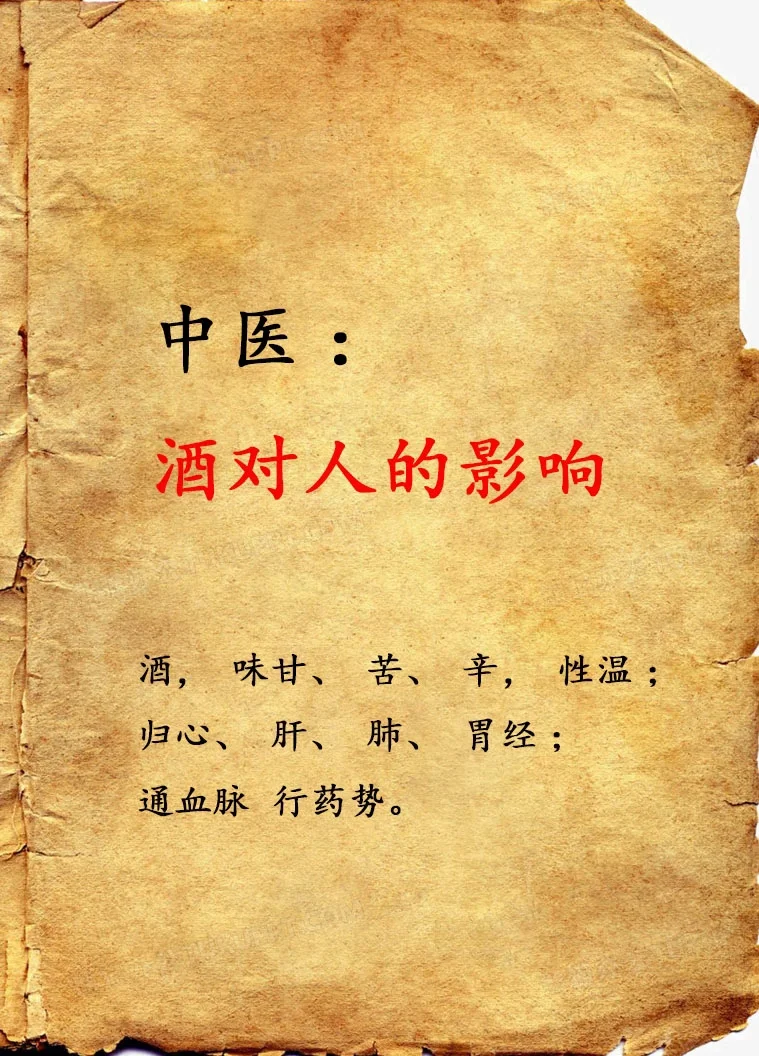 中医：
酒对人的影响
酒， 味甘、 苦、 辛， 性温；
归心、 肝、 肺、 胃经；
通血脉 行药势。